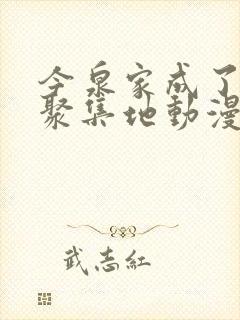 今泉家成了
聚集地動漫
武志紅